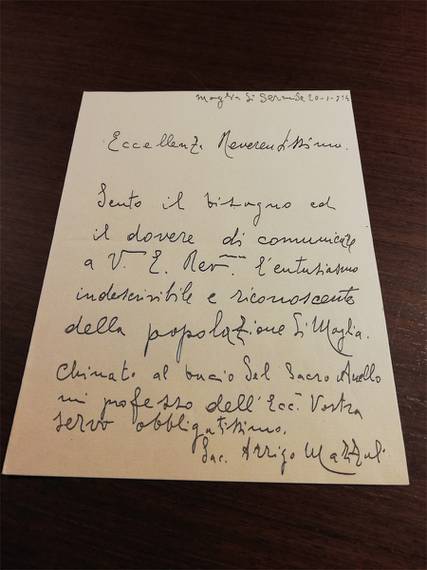 Maglia di Sermide 20-1-
Eccellenza Reverendissima.
Sento il bisogno ed
il dovere di comunicare
a V. E. Rev.ma l'entusiasmo
indescrivibile e riconoscente
della popolazione di Moglia.
Chinato al bacio del Sacro Anello
mi professo dell'Ecc. Vostra
servo obbligatissimo.
Sac. Arrigo Mazzali